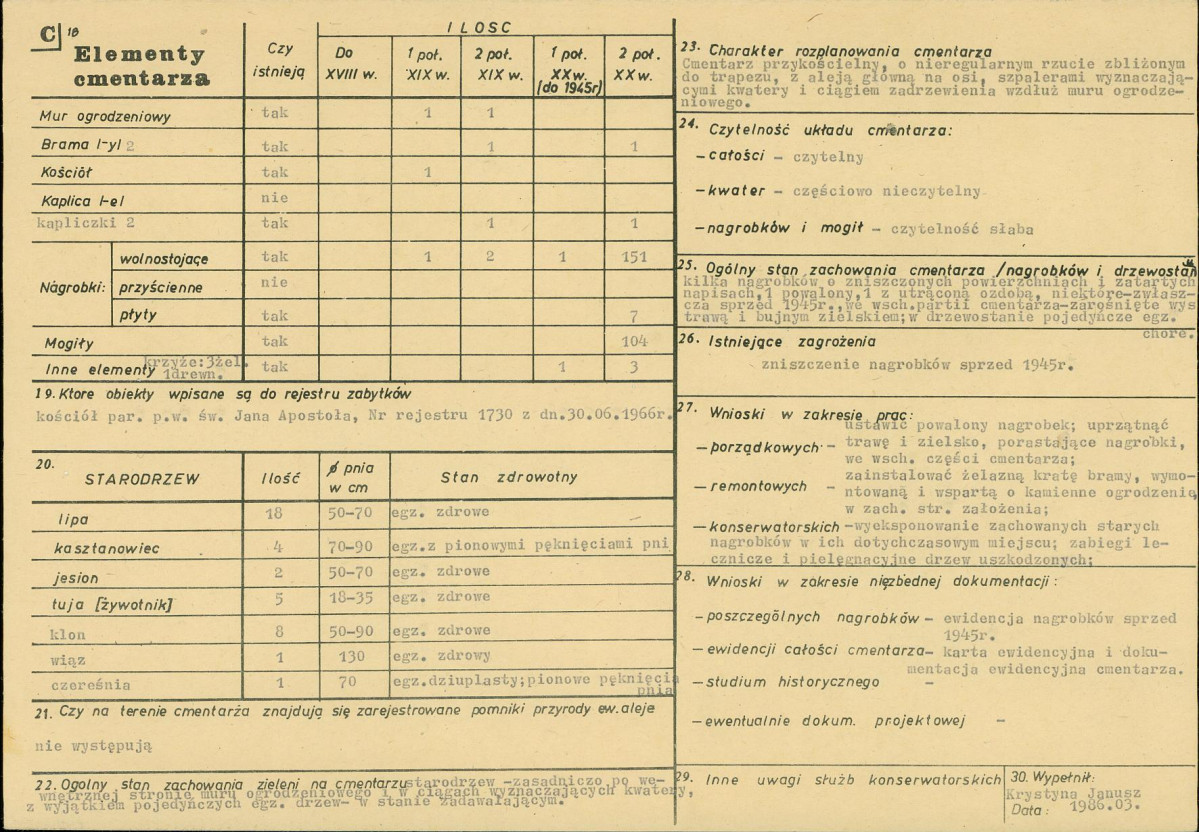 C 18
Elementy
cmentarza
Czy
istnieją
ILOSC
Do
XVIII w.
1 poł.
XIX w.
2 poł.
XIX w.
1 poł.
XX w.
(do 1945r)
2 poł.
XX w.
Mur ogrodzeniowy tak 1 1
Brama l-yl 2 tak 1 1
Kościół tak 1
Kaplica l-el nie
kapliczki 2 tak 1 1
Nagrobki:
wolnostojące tak 1 2 1 151
przyścienne nie
płyty tak 7
Mogiły tak 104
Inne elementy krzyże:3żel. tak 1 3
1drewn.
19. Ktore obiekty wpisane są do rejestru zabytków
kościół par. p.w. św. Jana Apostoła, Nr rejestru 1730 z dn.30.06.1966r.
20.
STARODRZEW Ilość ø pnia
w cm Stan zdrowotny
lipa 18 50-70 egz. zdrowe
kasztanowiec 4 70-90 egz.z pionowymi pęknięciami pni
jesion 2 50-70 egz. zdrowe
tuja [żywotnik] 5 18-35 egz. zdrowe
klon 8 50-90 egz. zdrowe
wiąz 1 130 egz. zdrowy
czereśnia 1 70 egz.dziuplasty;pionowe pęknięcia
pnia
21. Czy na terenie cmentarza znajdują się zarejestrowane pomniki przyrody ew. aleje
nie występują
22. Ogolny stan zachowania zieleni na cmentarzu starodrzew -zasadniczo po we-
wnętrznej stronie muru ogrodzeniowego i w ciągach wyznaczających kwatery,
z wyjątkiem pojedyńczych egz. drzew- w stanie zadawalającym.
23. Charakter rozplanowania cmentarza
Cmentarz przykościelny, o nieregularnym rzucie zbliżonym
do trapezu, z aleją główną na osi, szpalerami wyznaczają-
cymi kwatery i ciągiem zadrzewienia wzdłuż muru ogrodze-
niowego.
24. Czytelność układu cmentarza:
- całości - czytelny
- kwater - częściowo nieczytelny
- nagrobków i mogił - czytelność słaba
25. Ogólny stan zachowania cmentarza /nagrobków i drzewostan
kilka nagrobków o zniszczonych powierzchniach i zatartych
napisach,1 powalony,1 z utrąconą ozdobą, niektóre-zwłasz-
cza sprzed 1945r.,we wsch.partii cmentarza-zarośnięte wys
trawą i bujnym zielskiem;w drzewostanie pojedyńcze egz.
chore.
26. Istniejące zagrożenia
zniszczenie nagrobków sprzed 1945r.
27. Wnioski w zakresie prac:
ustawić powalony nagrobek; uprzątnąć
- porządkowych - trawę i zielsko, porastające nagrobki,
we wsch. części cmentarza;
zainstalować żelazną kratę bramy, wymo-
- remontowych - ntowaną i wspartą o kamienne ogrodzenie
w zach. str. założenia;
- konserwatorskich -wyeksponowanie zachowanych starych
nagrobków w ich dotychczasowym miejscu; zabiegi le-
cznicze i pielęgnacyjne drzew uszkodzonych;
28. Wnioski w zakresie niezbędnej dokumentacji:
- poszczególnych nagrobków - ewidencja nagrobków sprzed
1945r.
- ewidencji całości cmentarza- karta ewidencyjna i doku-
mentacja ewidencyjna cmentarza.
- studium historycznego -
- ewentualnie dokum. projektowej -
29. Inne uwagi służb konserwatorskich
30. Wypełnił:
Krystyna Janusz
Data: 1986.03.